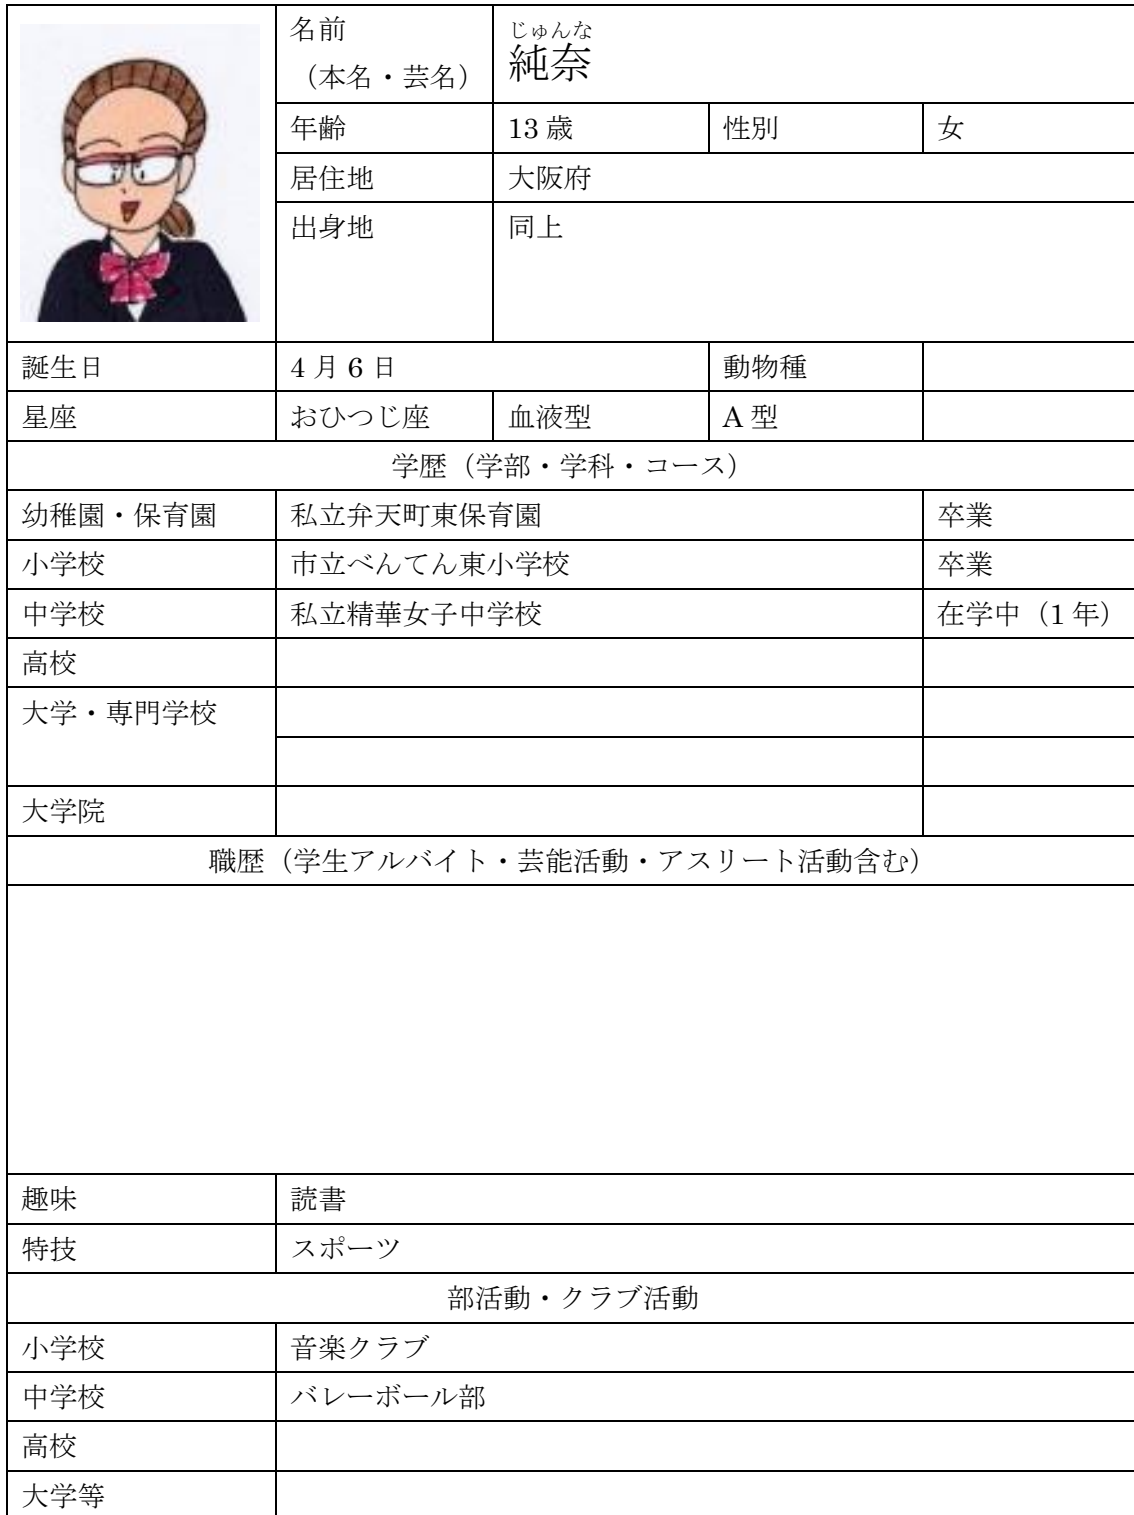 名前 じゅんな
（本名・芸名） 純奈
年齢 13歳 性別 女
居住地 大阪府
出身地 同上
誕生日 4月6日 動物種
星座 おひつじ座 血液型 A型
学歴（学部・学科・コース）
幼稚園・保育園 私立弁天町東保育園 卒業
小学校 市立べんてん東小学校 卒業
中学校 私立精華女子中学校 在学中（1年）
高校
大学・専門学校
大学院
職歴（学生アルバイト・芸能活動・アスリート活動含む）
趣味 読書
特技 スポーツ
部活動・クラブ活動
小学校 音楽クラブ
中学校 バレーボール部
高校
大学等